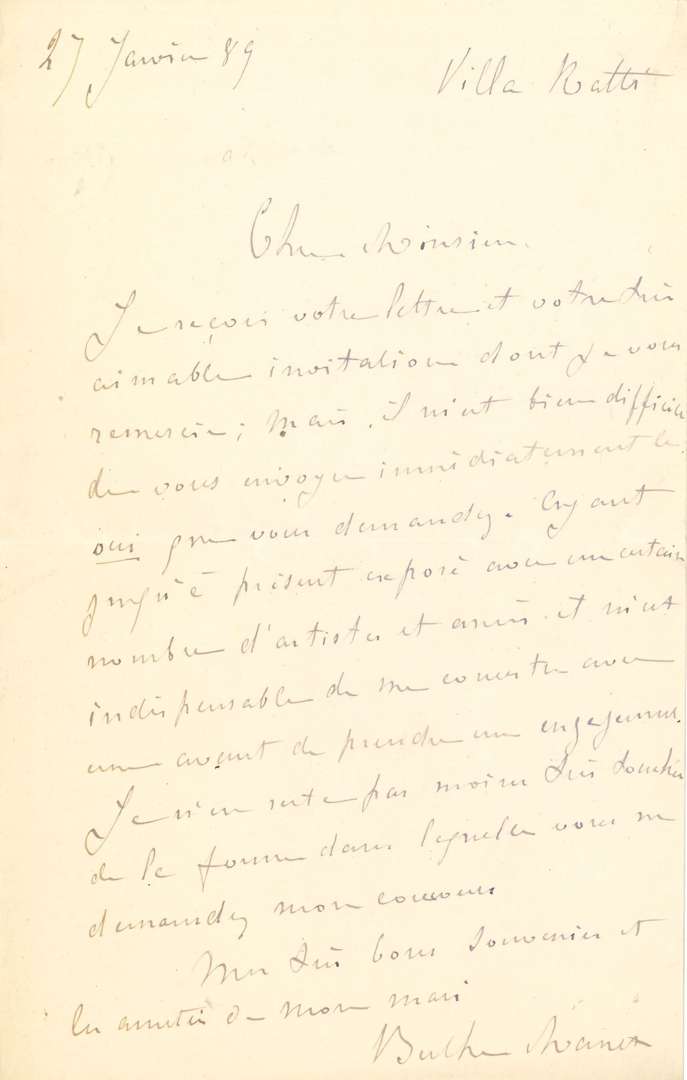 27 Janvier 89
Villa Ratti
Cher Monsieur.
Je reçois votre lettre et votre très
aimable invitation dont je vous
remercie ; Mais, il m'est bien difficile
de vous envoyer immédiatement le
oui que vous demandez. Ayant
jusqu'à présent exposé avec un certain
nombre d'artistes et amis il m'est
indispensable de me concerter avec
eux avant de prendre un engagement.
Je n'en reste pas moins très touchée
de la forme dans laquelle vous me
demandez mon concours
Mes très bons souvenirs et
les amitiés de mon mari
Berthe Manet